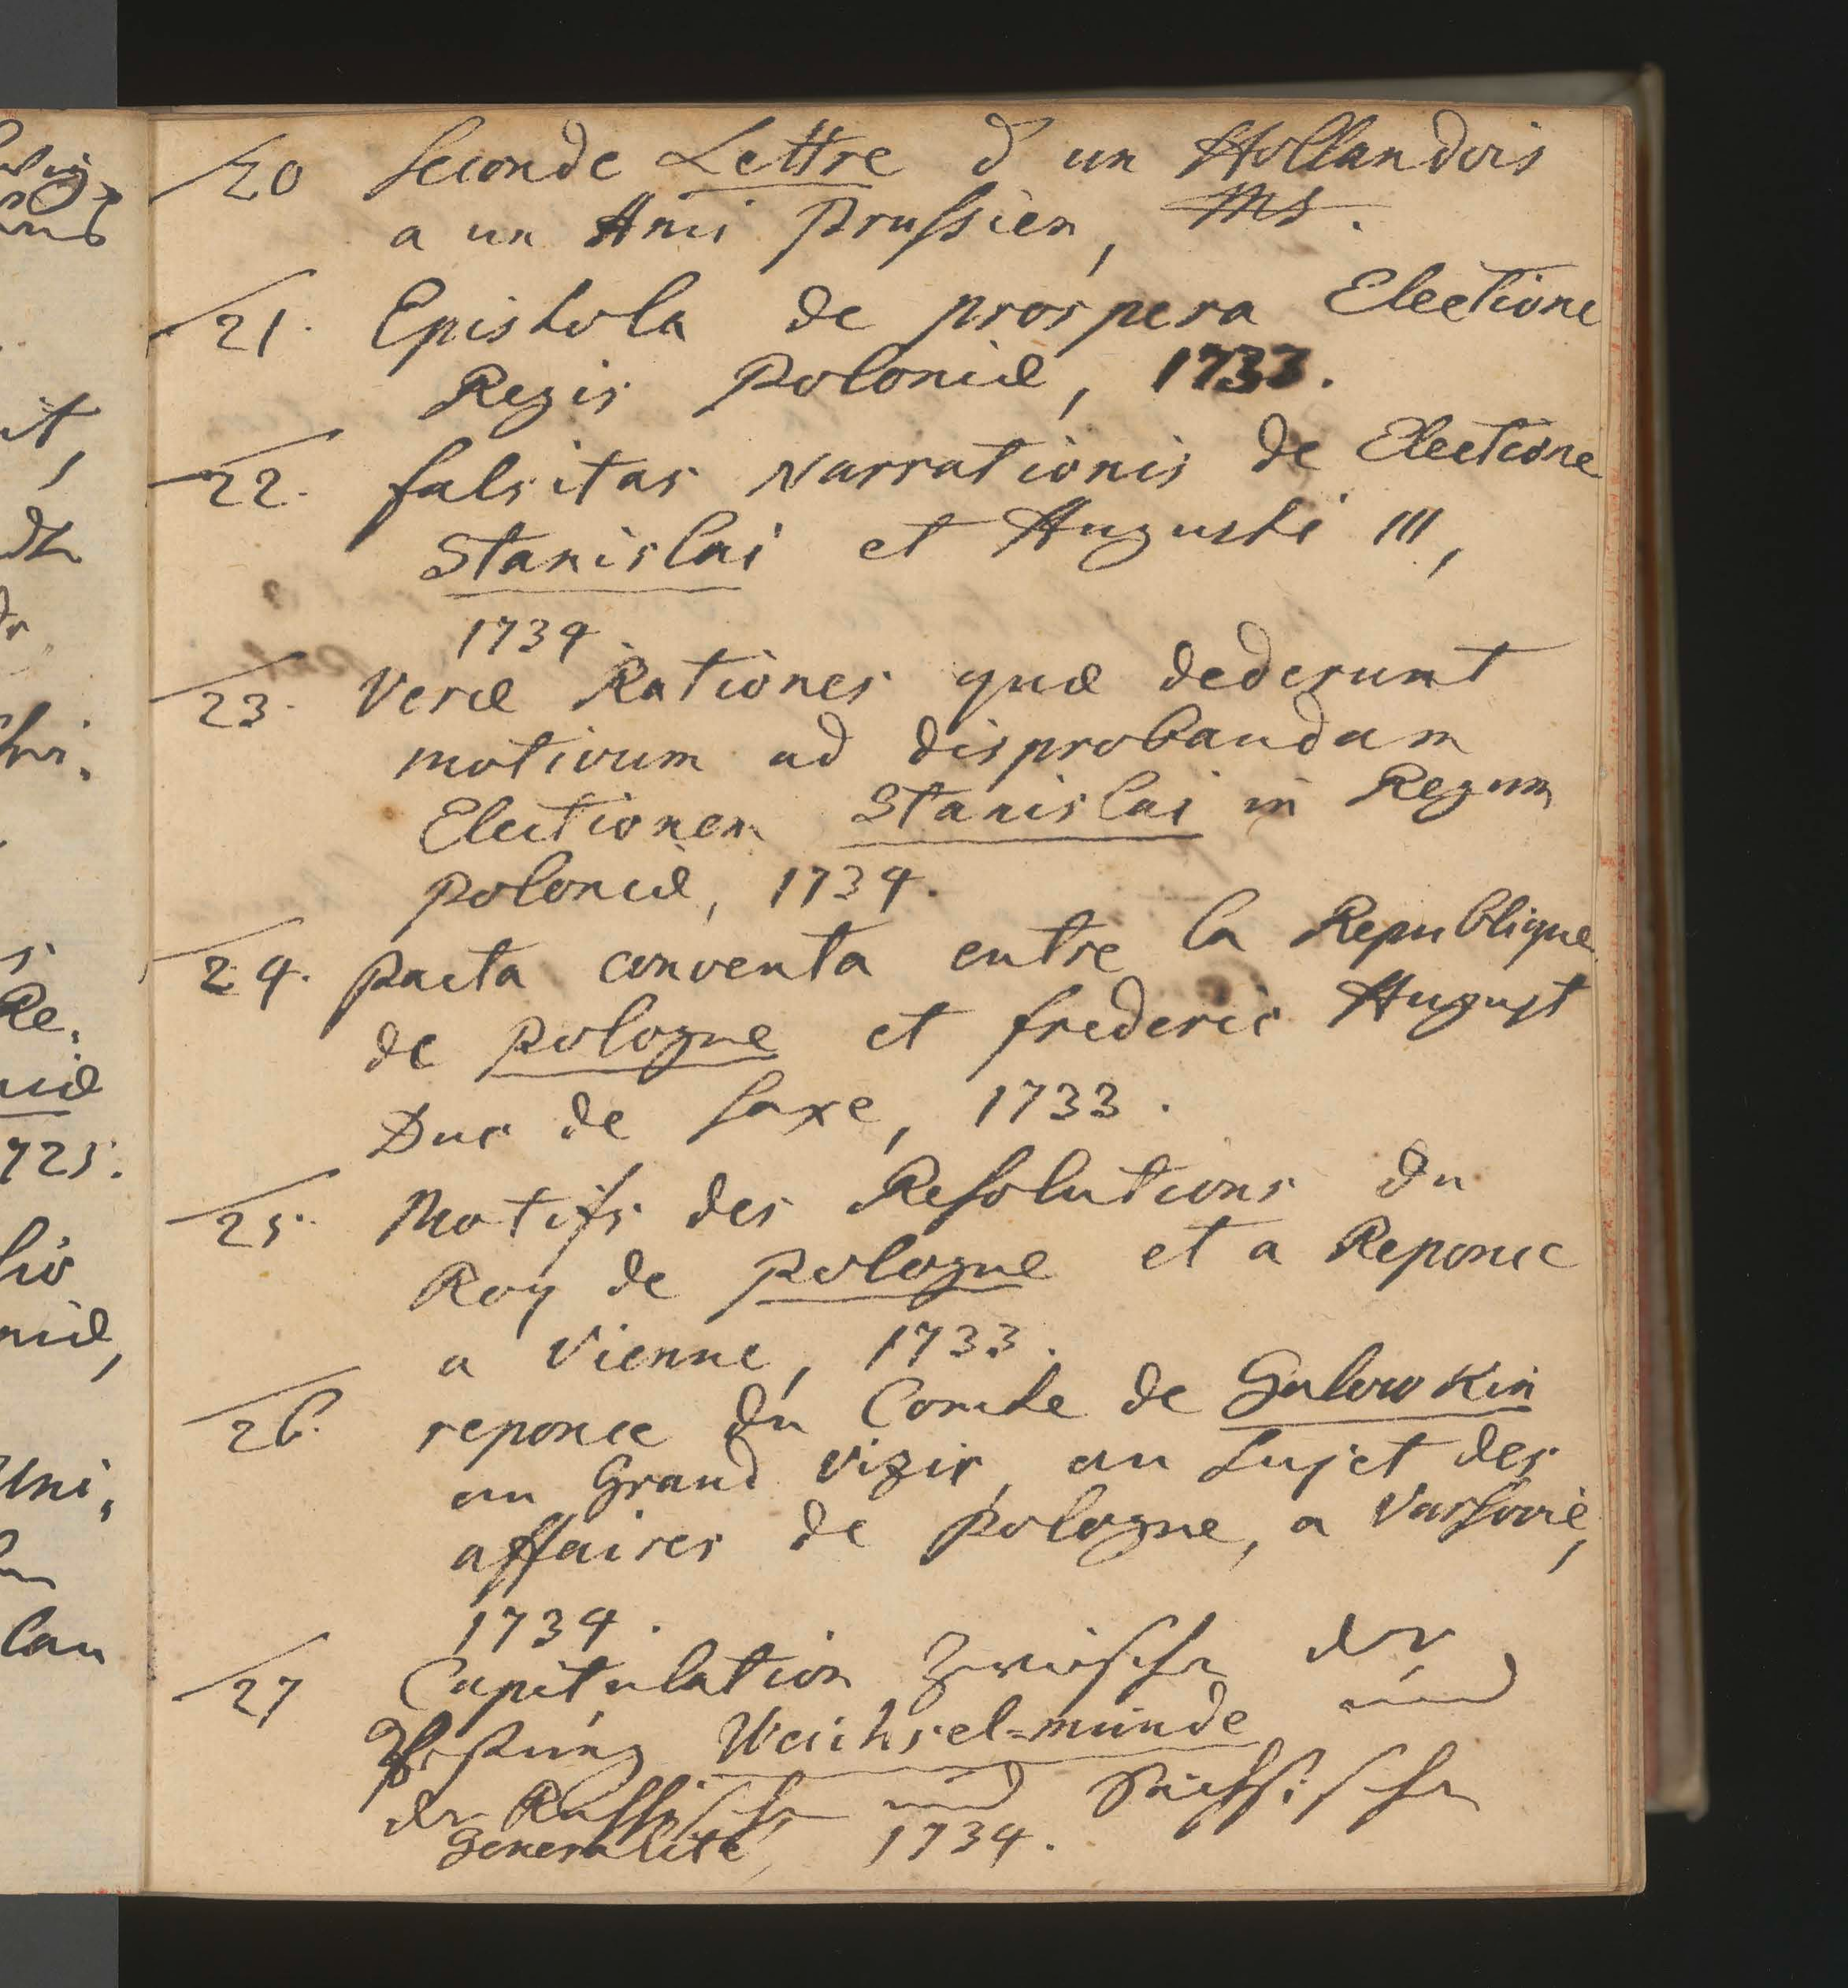 20 Seconde Lettre d'un Hollandois
a un Ami Prussien, Ms.
21. Epistola de prospera Electione
Regis Poloniæ, 1733.
22. falsitas Narrationis de Electione
Stanislai et Augusti III,
1734.
23. Veræ Rationes quæ dederunt
motivum ad disprobandam
Electionem Stanislai in Regum
Poloniæ, 1734.
24. Pacta conventa entre la Republique
de Pologne et frederic August
Duc de Saxe, 1733.
25. Motifs des Resolutions du
Roy de Pologne et a Reponce
a Vienne, 1733.
26. reponce du Comte de Golowkin
au Grand Vizir, au Sujet des
affaires de Pologne, a Varsovie,
1734.
27 Capitulation zwischen der
Vestung Weichsel=münde und
der Russischen und Sächsischen
Generalité, 1734.